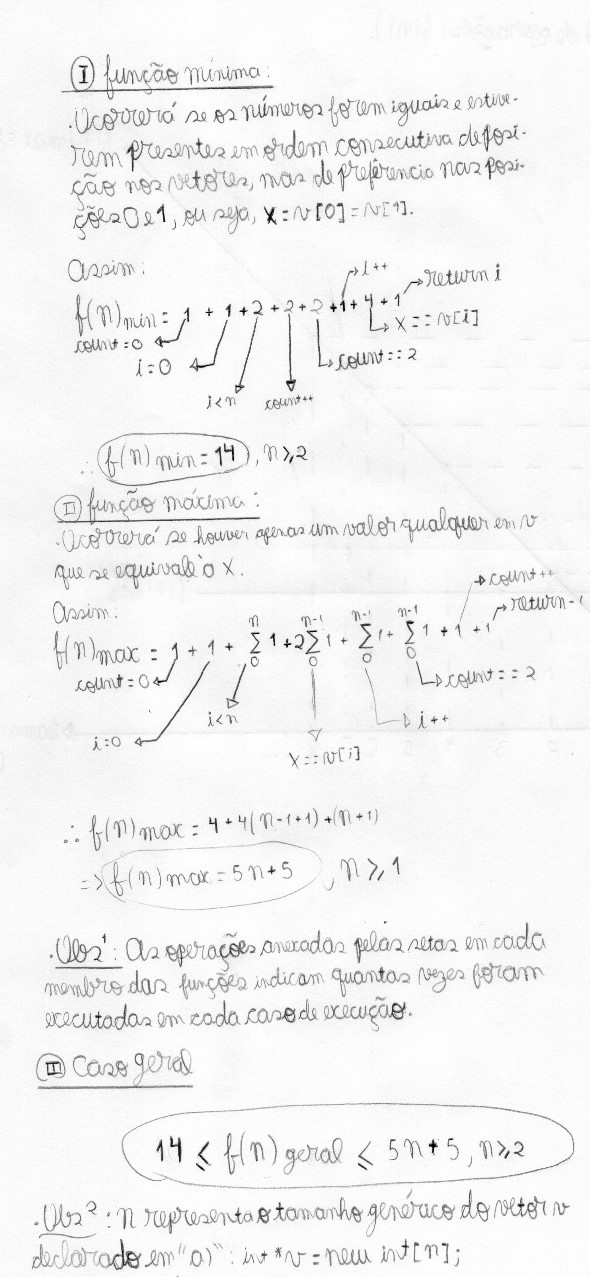 I função mínima:
. Ocorrerá se os números forem iguais e estive-
rem presentes em ordem consecutiva de posi-
ção nos vetores, mas de preferência nas posi-
ções 0 e 1, ou seja, X = v[0] = v[1].
Assim:
i++
return i
f(n) min = 1 + 1 + 2 + 2 + 2 + 1 + 4 + 1
count = 0
X == v[i]
i = 0
count == 2
i < n
count++
∴ f(n) min = 14, n ≥ 2
II função máxima:
. Ocorrerá se houver apenas um valor qualquer em v
que se equivale o X.
count++
Assim:
return -1
f(n) max = 1 + 1 + Σ(0..n) 1 + 2 Σ(0..n-1) 1 + Σ(0..n-1) 1 + Σ(0..n-1) 1 + 1 + 1
count = 0
count == 2
i < n
i++
i = 0
X == v[i]
∴ f(n) max = 4 + 4(n-1+1) + (n+1)
=> f(n) max = 5n + 5, n ≥ 1
. Obs¹: As operações anexadas pelas setas em cada
membro das funções indicam quantas vezes foram
executadas em cada caso de execução.
III Caso geral
14 ≤ f(n) geral ≤ 5n + 5, n ≥ 2
. Obs²: n representa o tamanho genérico do vetor v
declarado em "a)": int *v = new int[n];